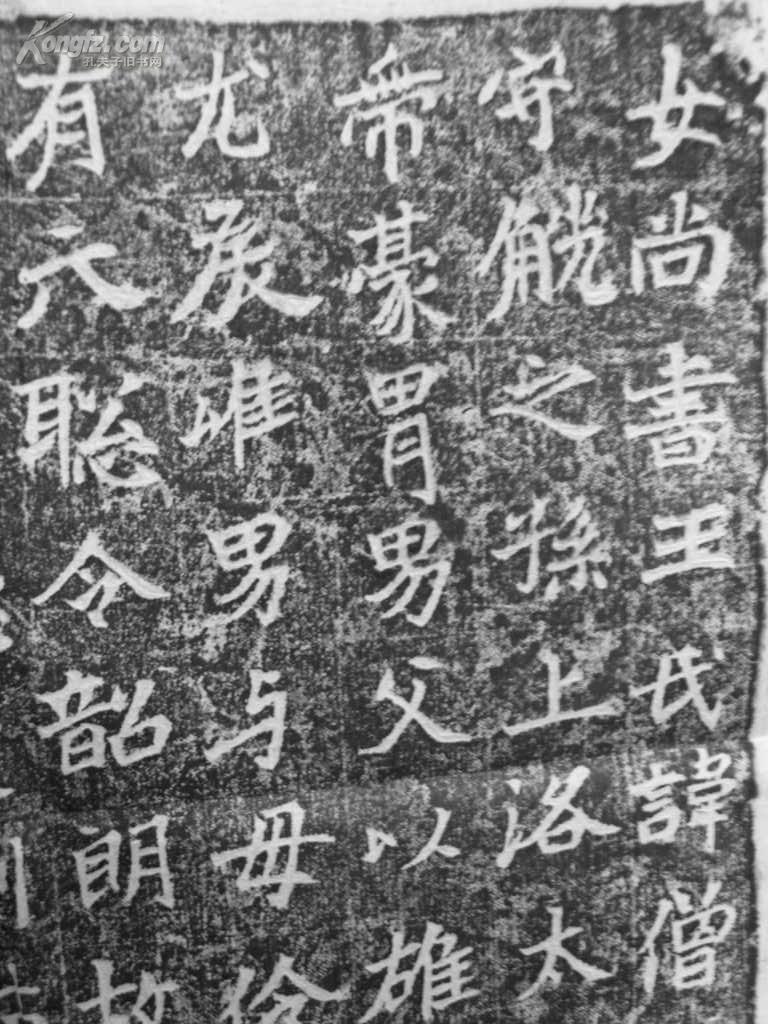 女尚書王氏諱僧
守觥之孫上洛太
帶豪胄男父以雄
尤戾唯男与母伶
有六聡令韶朗故
Kongfz.com
孔夫子旧书网